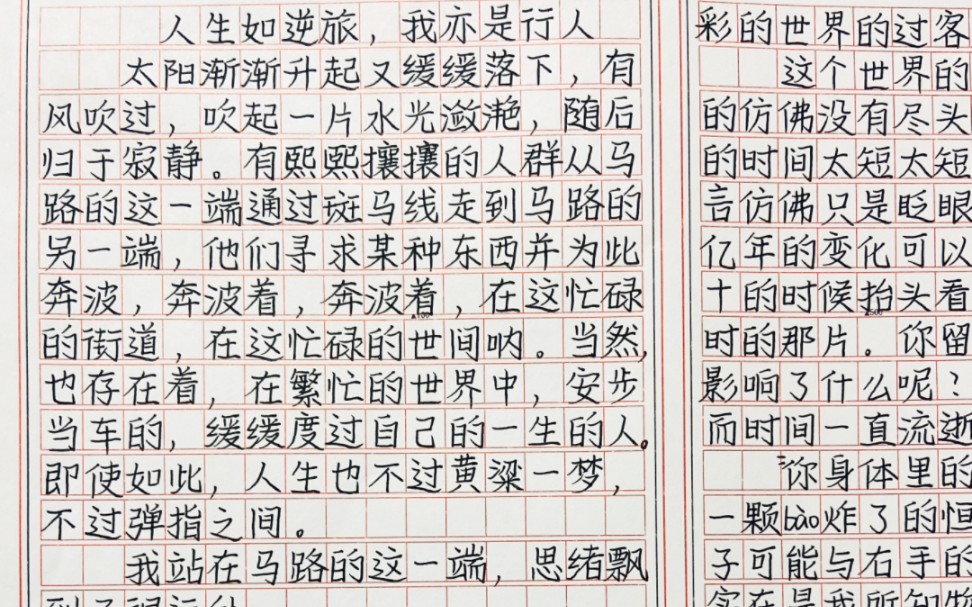 人生如逆旅，我亦是行人
太阳渐渐升起又缓缓落下，有
风吹过，吹起一片水光潋滟，随后
归于寂静。有熙熙攘攘的人群从马
路的这一端通过斑马线走到马路的
另一端，他们寻求某种东西并为此
奔波，奔波着，奔波着，在这忙碌
的街道，在这忙碌的世间呐。当然，
也存在着，在繁忙的世界中，安步
当车的，缓缓度过自己的一生的人。
即使如此，人生也不过黄粱一梦，
不过弹指之间。
我站在马路的这一端，思绪飘
彩的世界的过客
这个世界的
的仿佛没有尽头
的时间太短太短
言仿佛只是眨眼
亿年的变化可以
十的时候抬头看
时的那片。你留
影响了什么呢？
而时间一直流逝
你身体里的
一颗bào炸了的恒
子可能与右手的